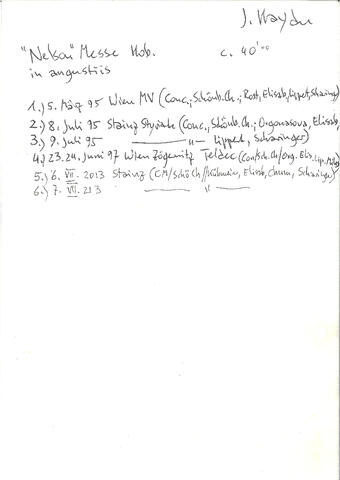 J. Haydn
"Nelson" Messe Hob. c. 40'00
in angustiis
1.) 5. März 95 Wien MV (Conc.; Schönb. Ch.; Rost, Elisab, Lippert, Scharinger)
2.) 8. Juli 95 Stainz Styriarte (Conc., Schönb. Ch.; Orgonasova, Elisab,
3.) 9. Juli 95 —— " —— Lippert, Scharinger)
4.) 23.24. Juni 97 Wien Zögernitz Teldec (Con/Sch.Ch/Org. Elis. Lip.
5.) 6. VII. 2013 Stainz (CM/Schö Ch//Kühmeier, Elisab, Chum, Scharinger)
6.) 7. VII. 213 —— " ——